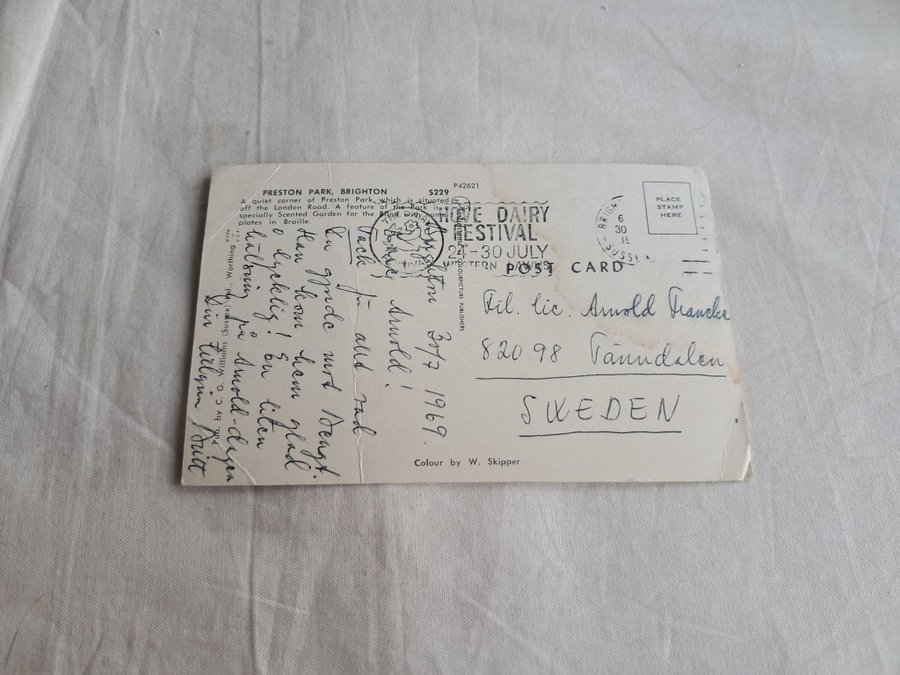 PRESTON PARK, BRIGHTON S229
A quiet corner of Preston Park, which is situated
off the London Road. A feature of the Park is a
specially Scented Garden for the Blind with name
plates in Braille.
P42621
HOVE DAIRY
FESTIVAL
24-30 JULY
WESTERN LAWNS
6
30
PLACE
STAMP
HERE
POST CARD
Fil. lic. Arnold Francke
820 98 Tänndalen
SWEDEN
Brighton 30/7 1969.
Arnold!
Tack för allt vad
Du gjorde mot Bengt.
Han kom hem glad
o lycklig! En liten
hälsning på Arnold-dagen
Din Britt
Pub. by C. G. Williams (Sussex) Ltd., Worthing
Colour by W. Skipper